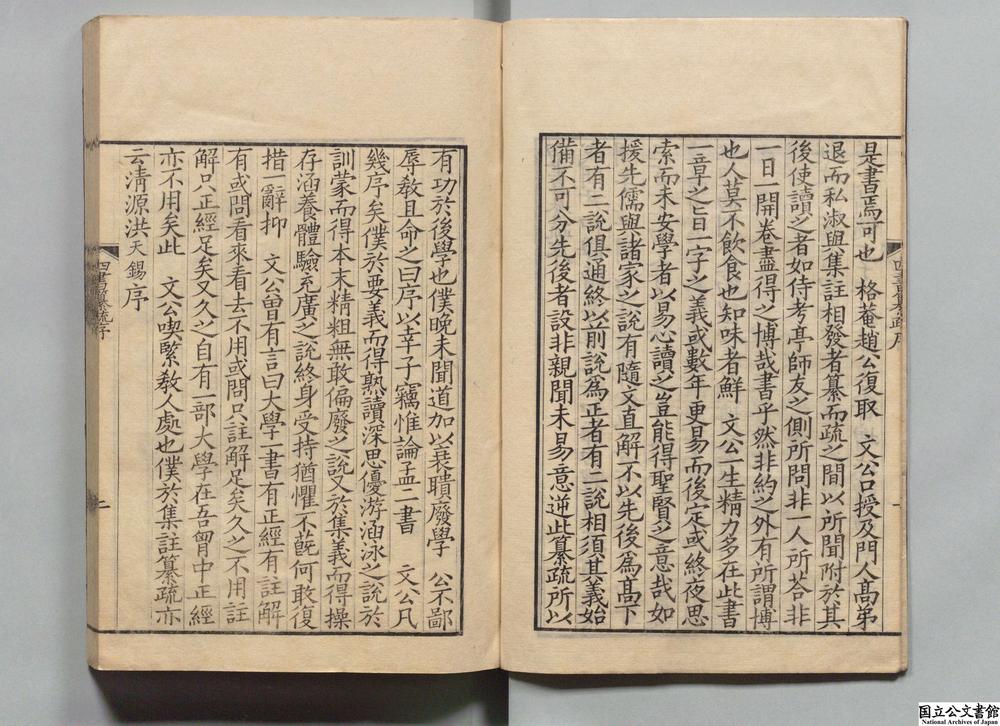 是書焉可也　格菴趙公復取　文公口授及門人髙弟
退而私淑與集註相發者纂而疏之間以所聞附於其
後使讀之者如侍考亭師友之側所問非一人所荅非
一日一開卷盡得之博哉書乎然非約之外有所謂博
也人莫不飲食也知味者鮮　文公一生精力多在此書
一章之旨一字之義或數年更易而後定或終夜思
索而未安學者以易心讀之豈能得聖賢之意哉如
援先儒與諸家之說有隨文直解不以先後為髙下
者有二說俱通終以前說為正者有二說相須其義始
備不可分先後者設非親聞未易意逆此纂疏所以
四書纂疏序
一
有功於後學也僕晚未聞道加以衰聵廢學　公不鄙
辱敎且命之曰序以幸子竊惟論孟二書　文公凡
幾序矣僕於要義而得熟讀深思優游涵泳之說於
訓蒙而得本末精粗無敢偏廢之說又於集義而得操
存涵養體驗充廣之說終身受持猶懼不旣何敢復
措一辭抑　文公曽有言曰大學一書有正經有註解
有或問看來看去不用或問只註解足矣久之不用註
解只正經足矣又久之自有一部大學在吾胷中正經
亦不用矣此　文公喫緊敎人處也僕於集註纂疏亦
云淸源洪天錫序
四書纂疏序
二
国立公文書館
National Archives of Japan